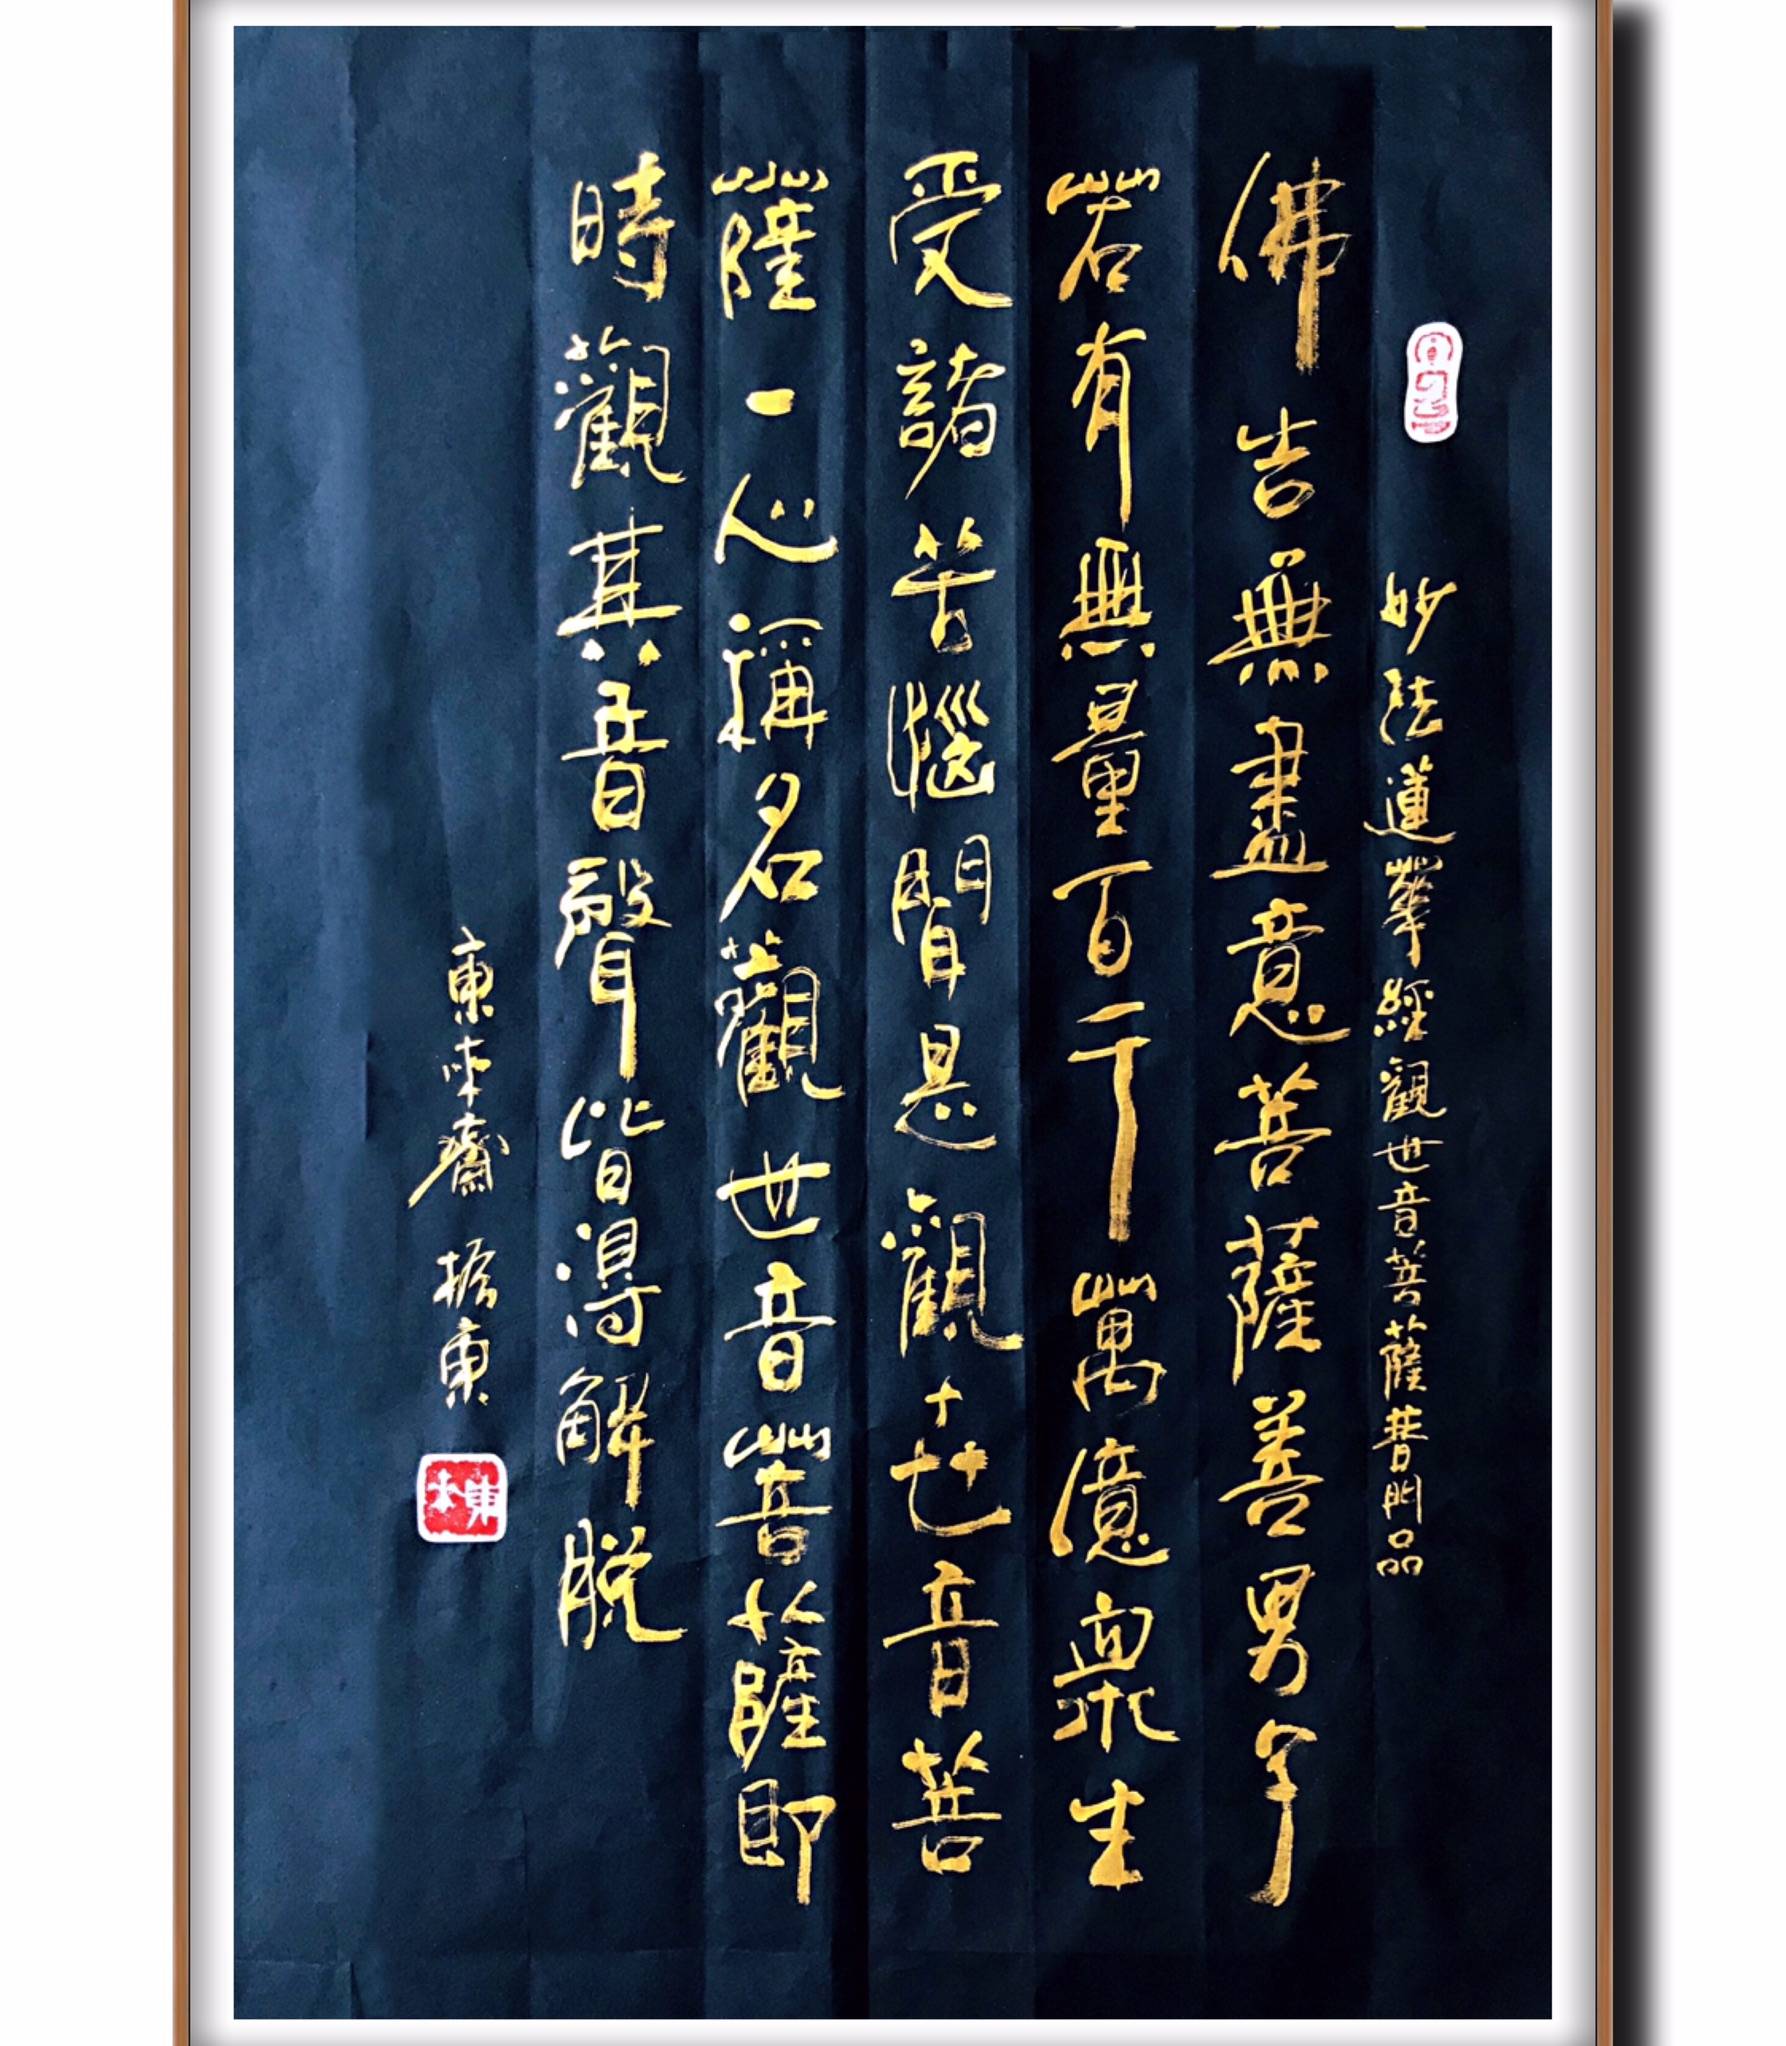 妙法蓮華經觀世音菩薩普門品
佛告無盡意菩薩善男子
若有無量百千萬億衆生
受諸苦惱聞是觀世音菩
薩一心稱名觀世音菩薩即
時觀其音聲皆得解脫
東來齋 振東